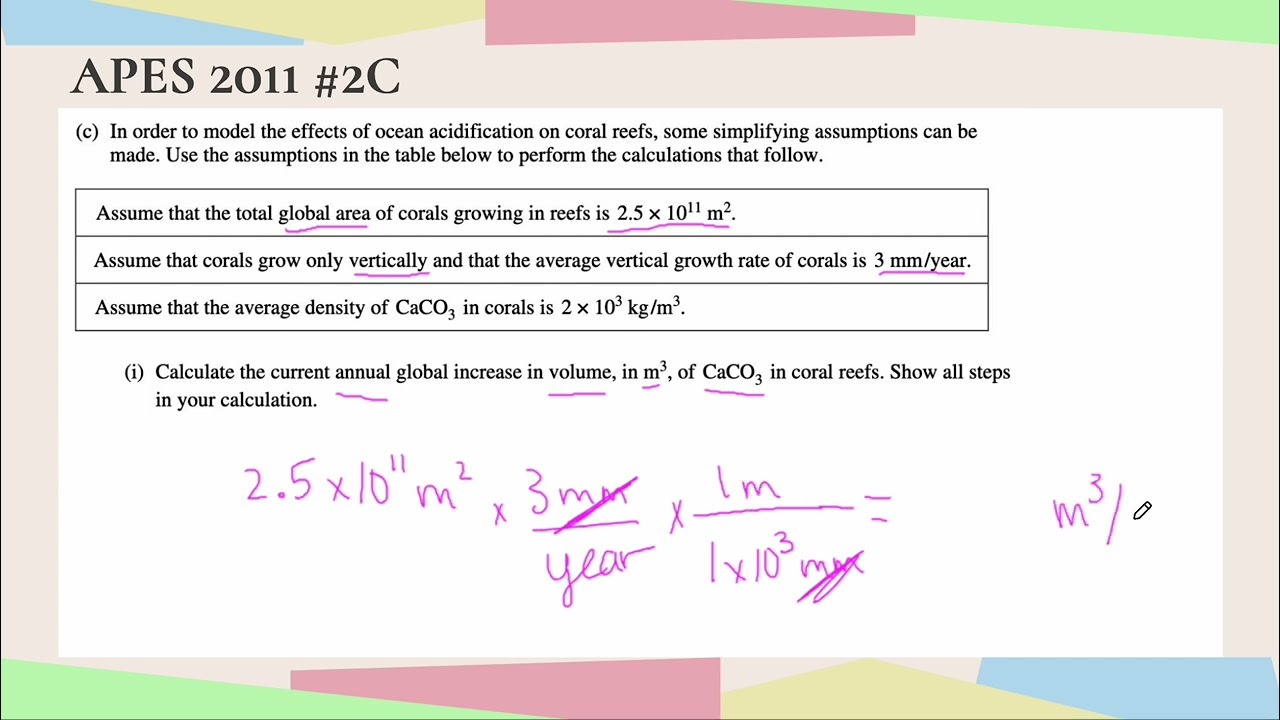 APES 2011 #2C
(c) In order to model the effects of ocean acidification on coral reefs, some simplifying assumptions can be
made. Use the assumptions in the table below to perform the calculations that follow.
Assume that the total global area of corals growing in reefs is 2.5 × 10¹¹ m².
Assume that corals grow only vertically and that the average vertical growth rate of corals is 3 mm/year.
Assume that the average density of CaCO₃ in corals is 2 × 10³ kg/m³.
(i) Calculate the current annual global increase in volume, in m³, of CaCO₃ in coral reefs. Show all steps
in your calculation.
2.5 x 10¹¹ m² x 3 mm / year x 1 m / 1 x 10³ mm = m³/